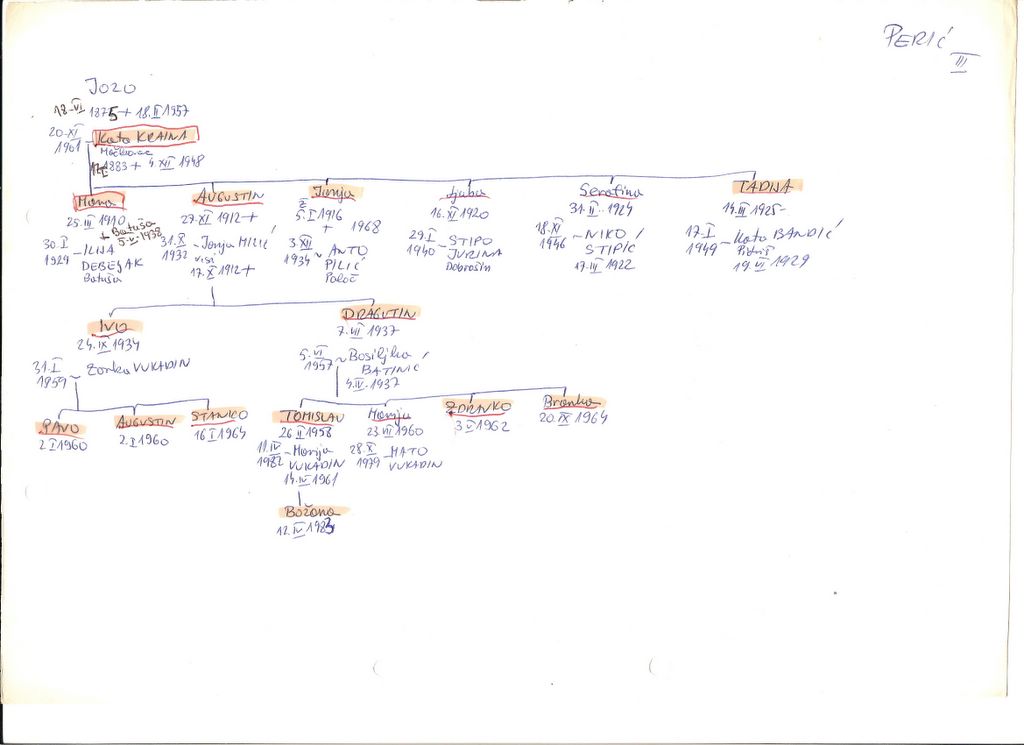 PERIĆ
III
JOZO
18-VI 1875 + 18.II 1957
20.XI
1901
Kata KRAINA
1883 + 4.XII 1948
Mara
25.III 1910
+ Batuša
5-VI-1938
30.I
1929 – ILIJA
DEBELJAK
Batuša
AUGUSTIN
27.XI 1912 +
31.X
1932 – Janja MILIĆ
17.X 1912 +
Janja
5.I 1916
+ 1968
3.XII
1934 ~ ANTO
PILIĆ
Paloč
Ljuba
16.XI 1920
29.I
1940 – STIPO
JURINA
Dobrošin
Serafina
31.III 1924
18.XI
1946 – NIKO
STIPIĆ
17.III 1922
TADIJA
14.III 1925-
17.I
1949 – Kata BANDIĆ
19.VI 1929
IVO
24.IX 1934
31.I
1959 ~ Zorka VUKADIN
DRAGUTIN
7.VII 1937
5.VI
1957 ~ Bosiljka
BATINIĆ
4.IV.1937
PAVO
2.I 1960
AUGUSTIN
2.I 1960
STANKO
16.I 1964
TOMISLAV
26.II 1958
11.IV
1982 – Marija
VUKADIN
14.IV 1961
Marija
23.VII 1960
28.X
1979 – MATO
VUKADIN
ZDRAVKO
3.V 1962
Branka
20.IX 1964
Božana
12.IV 1983